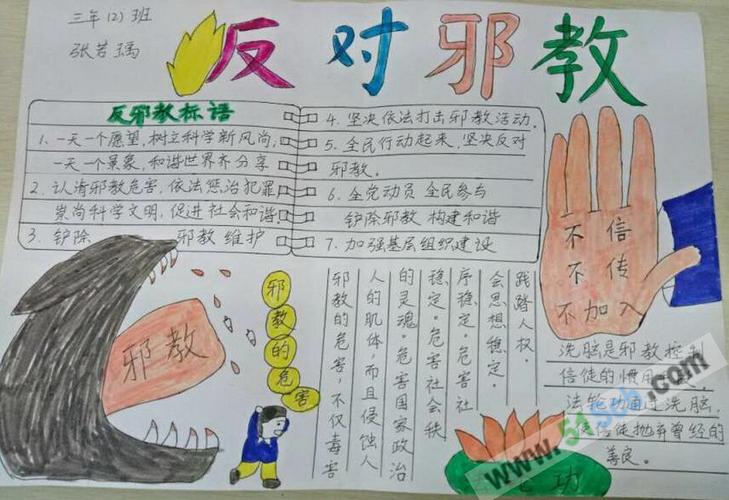 三年(2)班
张若瑀
反对邪教
反邪教标语
1. 一天一个愿望,树立科学新风尚;
一天一个景象,和谐世界齐分享
2. 认清邪教危害,依法惩治犯罪
崇尚科学文明,促进社会和谐
3. 铲除 邪教 维护
4. 坚决依法打击邪教活动.
5. 全民行动起来,坚决反对
邪教。
6. 全党动员 全民参与
铲除邪教 构建和谐
7. 加强基层组织建设
不信
不传
不加入
邪教
邪教的危害
邪教的危害,不仅毒害
人的肌体,而且侵蚀人
的灵魂。危害国家政治
稳定。危害社会秩
序稳定。危害社
会思想稳定。
践踏人权.
洗脑是邪教控制
信徒的惯用
法轮功通过洗脑,
使信徒抛弃曾经的
善良。
功